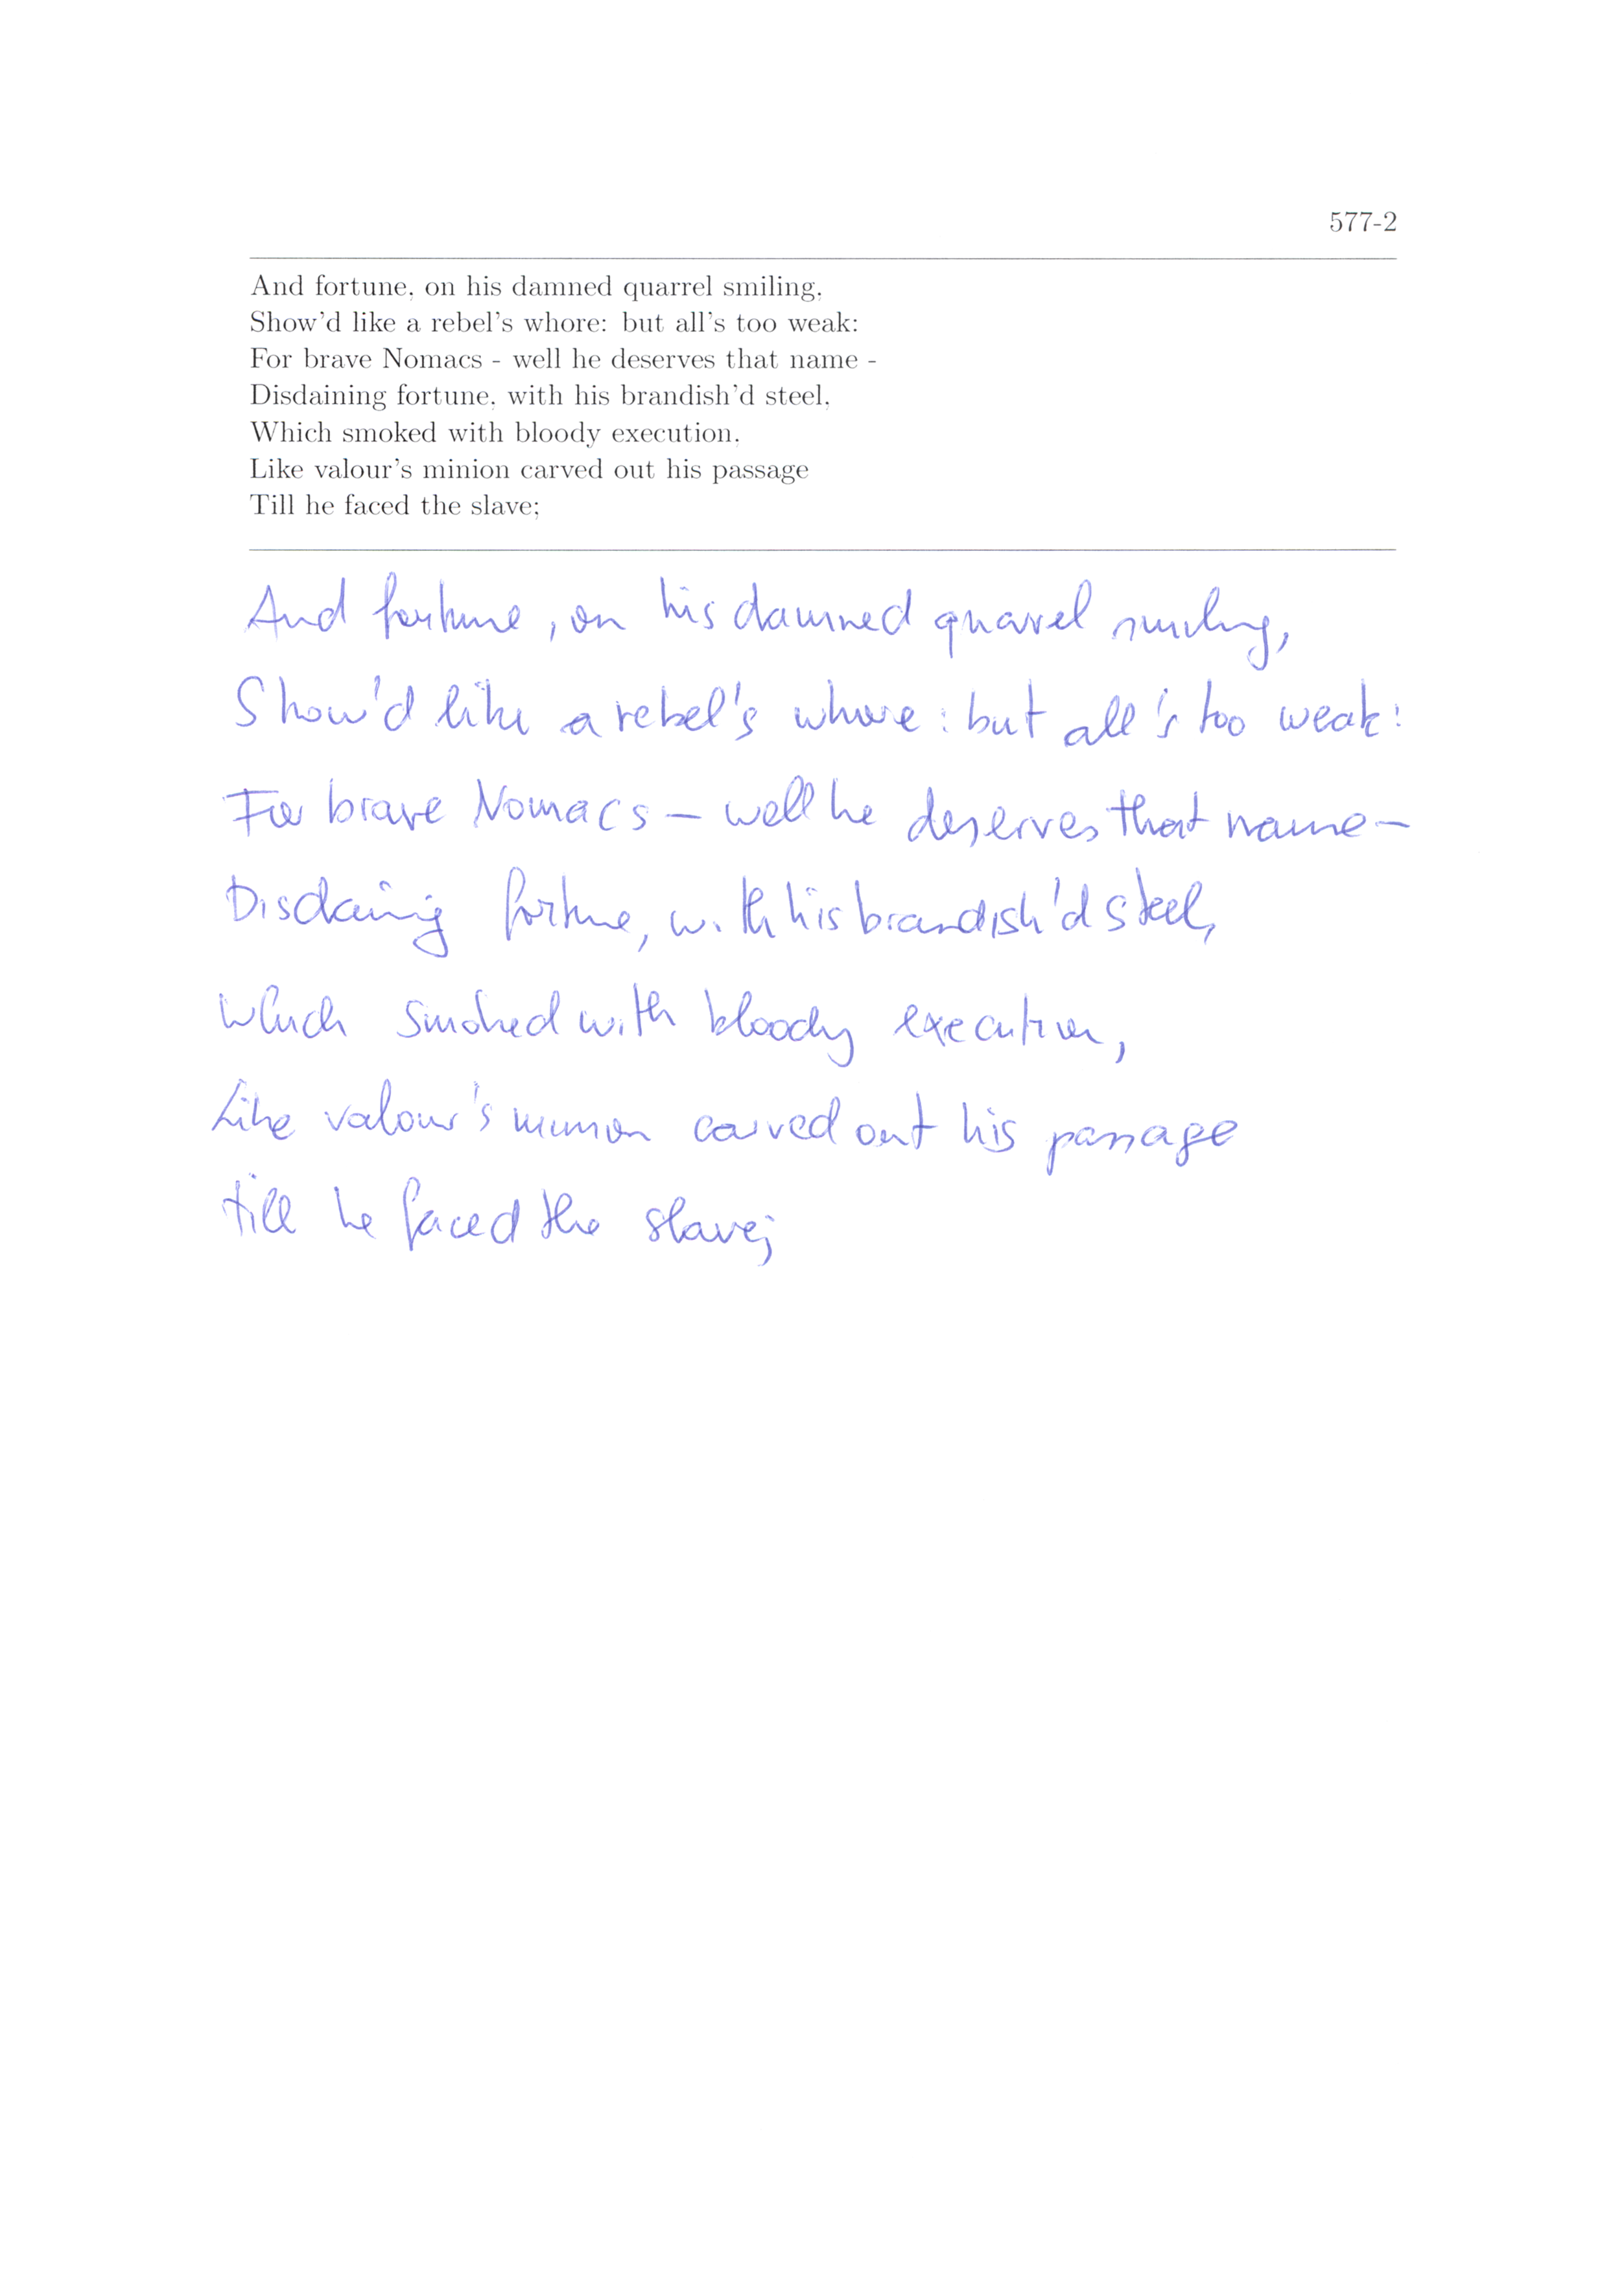 577-2
And fortune, on his damned quarrel smiling,
Show'd like a rebel's whore: but all's too weak:
For brave Nomacs - well he deserves that name -
Disdaining fortune, with his brandish'd steel,
Which smoked with bloody execution,
Like valour's minion carved out his passage
Till he faced the slave;
And fortune, on his damned quarrel smiling,
Show'd like a rebel's whore: but all's too weak:
For brave Nomacs – well he deserves that name –
Disdaining fortune, with his brandish'd steel,
Which smoked with bloody execution,
Like valour's minion carved out his passage
till he faced the slave;